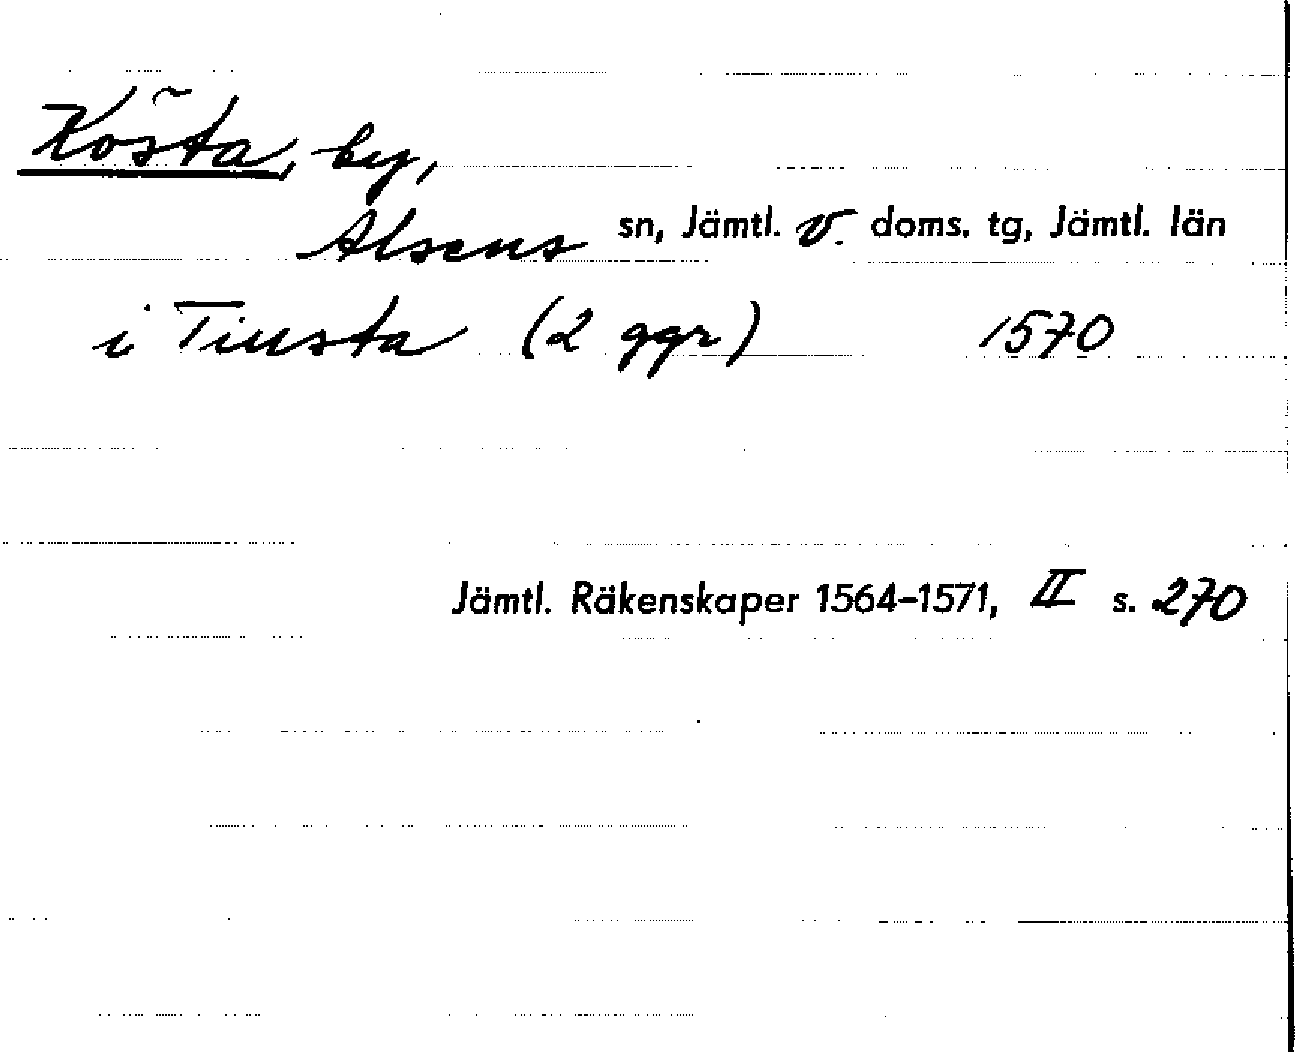 Kösta, by,
Alsens sn, Jämtl. v. doms. tg, Jämtl. län
i Tiusta (2 ggr) 1570
Jämtl. Räkenskaper 1564-1571, II s. 270